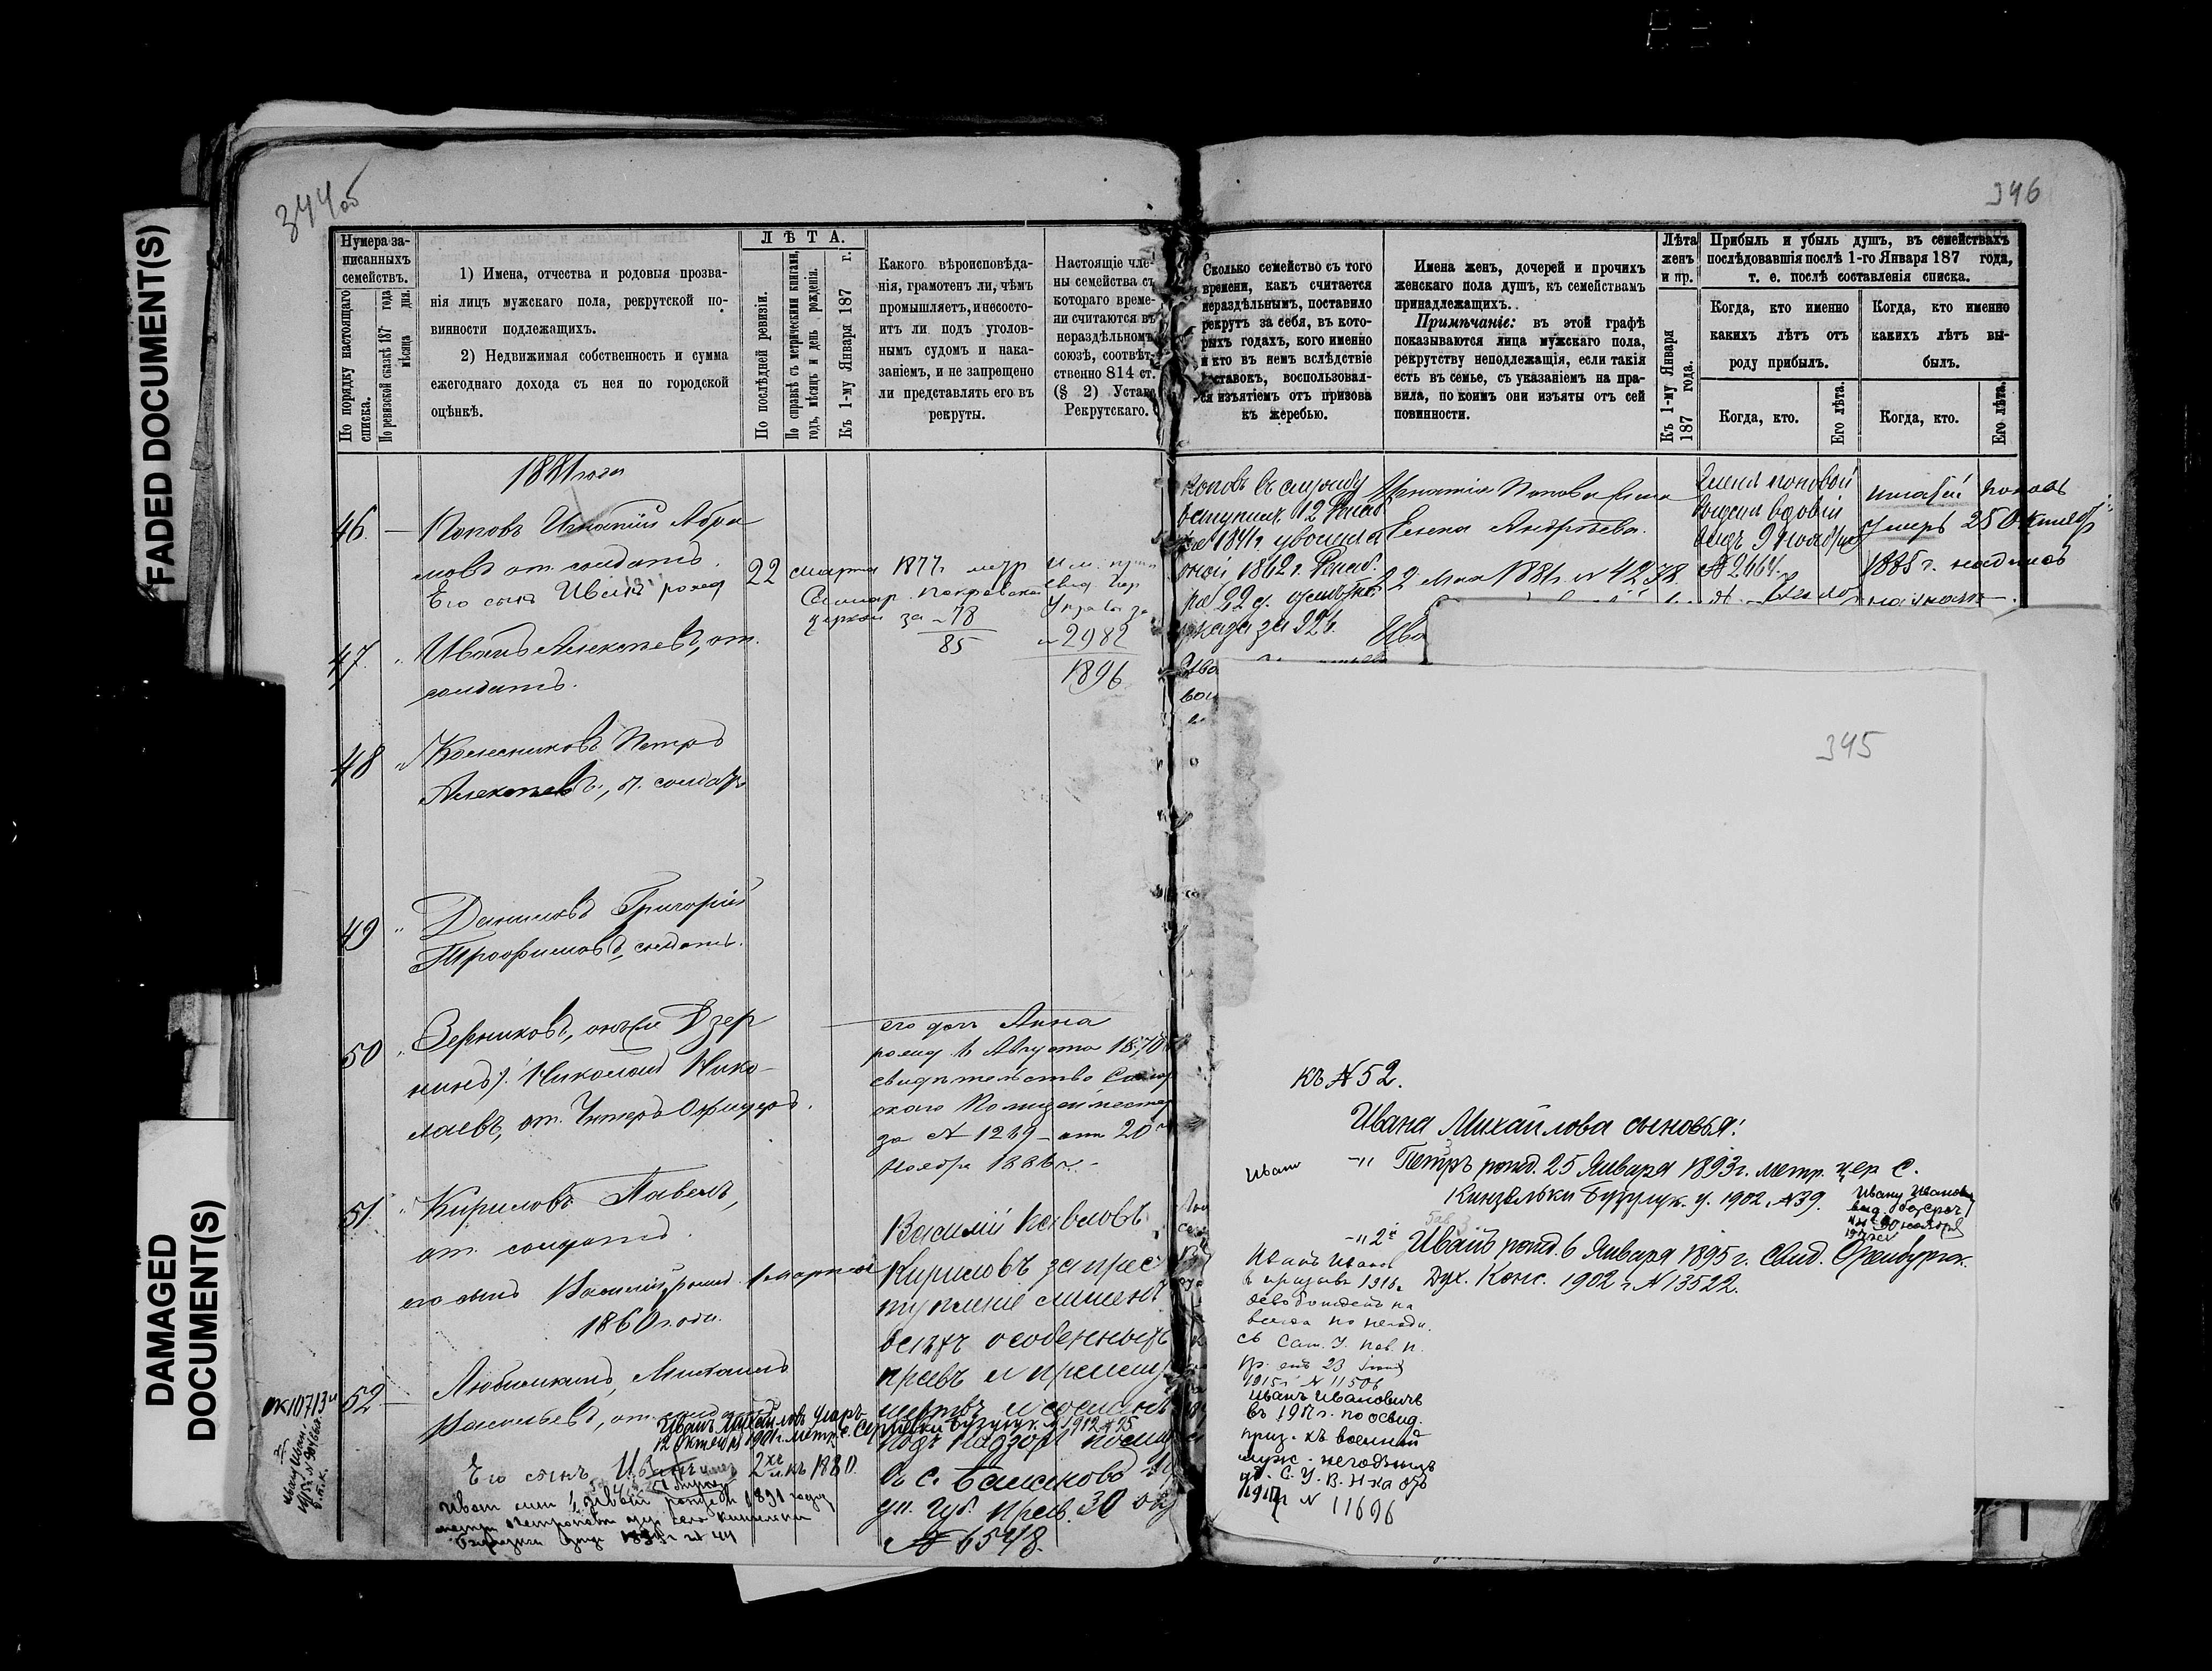 FADED DOCUMENT(S)
DAMAGED DOCUMENT(S)
344об
Нумера записанныхъ семействъ.
По порядку настоящаго списка.
По ревизской сказкѣ 187 года мѣсяца дня.
1) Имена, отчества и родовыя прозва-
нія лицъ мужскаго пола, рекрутской по-
винности подлежащихъ.
2) Недвижимая собственность и сумма
ежегоднаго дохода съ нея по городской
оцѣнкѣ.
ЛѢТА.
По послѣдней ревизіи.
По справкѣ съ метрическими книгами, годъ, мѣсяцъ и день рожденія.
Къ 1-му Января 187 г.
Какого вѣроисповѣда-
нія, грамотенъ ли, чѣмъ
промышляетъ, и несосто-
итъ ли подъ уголов-
нымъ судомъ и нака-
заніемъ, и не запрещено
ли представлять его въ
рекруты.
Настоящіе чле-
ны семейства съ
котораго време-
ни считаются въ
нераздѣльномъ
союзѣ, соотвѣт-
ственно 814 ст.
(§ 2) Устава
Рекрутскаго.
1881 года
46. — Поповъ Игнатій Абра
мовъ от. солдатъ.
Его сынъ Иванъ рожд 22 марта 1877 г. метр
Самар. Покровской
церкви за № 78
85
№ 2982
1896
47. " Иванъ Алексѣевъ, от.
солдатъ.
48 " Колесниковъ Петръ
Алексѣевъ, о. солдатъ
49 " Даниловъ Григорій
Трофимовъ, солдатъ.
50 " Зерниковъ, онъ же Дзер
нинъ). Николай Нико-
лаевъ, от. Унтеръ Офицеръ.
его дочь Анна
рожд. 6 Августа 1870
свидѣтельство Самар
скаго Полицейместера
за № 1269 — от 20
Ноября 1886 г. —
51. " Кириловъ Павелъ,
от. солдатъ.
его сынъ Василій рожд. 1 марта
1860 года.
Василій Павловъ
Кириловъ за прес
тупленіе лишенъ
всѣхъ особенныхъ
правъ и преиму
ществъ и сосланъ
подъ надзоръ полиц
въ с. Балаково
Губ. Прав. 30
№ 6548.
52. — Любимкинъ, Михаилъ
Васильевъ, от. солдатъ
Иванъ Михайловъ
12 Октября 1901 г. метр. с. Бузулук. у 1912 № 95
Его сынъ Иванъ 2хъ л. къ 1880.
346
Сколько семейство съ того
времени, какъ считается
нераздѣльнымъ, поставило
рекрутъ за себя, въ кото-
рыхъ годахъ, кого именно
и кто въ немъ вслѣдствіе
ставокъ, воспользовал-
ся изъятіемъ отъ призова
къ жеребью.
Имена женъ, дочерей и прочихъ
женскаго пола душъ, къ семействамъ
принадлежащихъ.
Примѣчаніе: въ этой графѣ
показываются лица мужскаго пола,
рекрутству неподлежащія, если такія
есть въ семьѣ, съ указаніемъ на пра-
вила, по коимъ они изъяты отъ сей
повинности.
Лѣта женъ и пр.
Къ 1-му Января 187 года.
Прибыль и убыль душъ, въ семействахъ
послѣдовавшія послѣ 1-го Января 187 года,
т. е. послѣ составленія списка.
Когда, кто именно
какихъ лѣтъ отъ
роду прибылъ.
Когда, кто именно
какихъ лѣтъ вы-
былъ.
Когда, кто.
Его лѣта.
Когда, кто.
Его лѣта.
Поповъ въ службу
вступилъ 12
1841 г. уволенъ
1862 г.
указа за 22
Игнатія Попова жена
Елена Андрѣева.
22 Мая 1881 г. № 4238.
Еленѣ Поповой
выданъ вдовій
видъ 9 Ноября
№ 2664.
Игнатій Поповъ
Умеръ 25 Октября
1885 г.
345
къ № 52.
Ивана Михайлова сыновья:
Петръ рожд. 25 Января 1893 г. метр. цер. с.
Кинзельки Бузулук. у. 1902, № 39.
Ивану Иванову
2й Иванъ рожд. 6 Января 1895 г. Свид. Оренбургск.
Дух. Конс. 1902 г. № 13522.
Иванъ Иванов
в призывъ 1916 г.
освобожденъ на
всегда по негодн.
съ Сам. У. пов. п.
пр. отъ 23
1915 г. № 11506
Иванъ Ивановичъ
въ 1917 г. по освид.
приз. къ военной
служ. негоднымъ
уд. С. У. В. Н-ка отъ
1917 г. № 11696